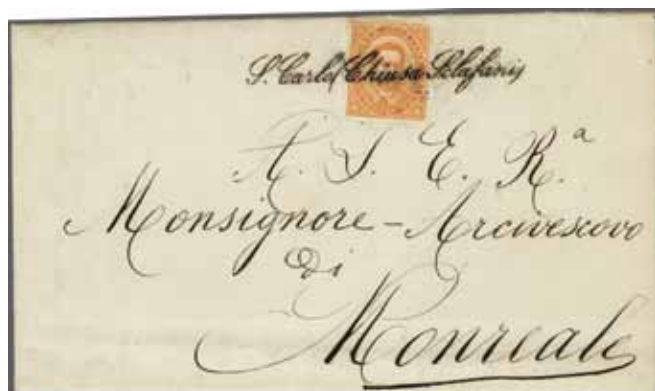 S. Carlo (Chiusa Sclafani)
A. S. E. R.ª
Monsignore - Arcivescovo
Di
Monreale